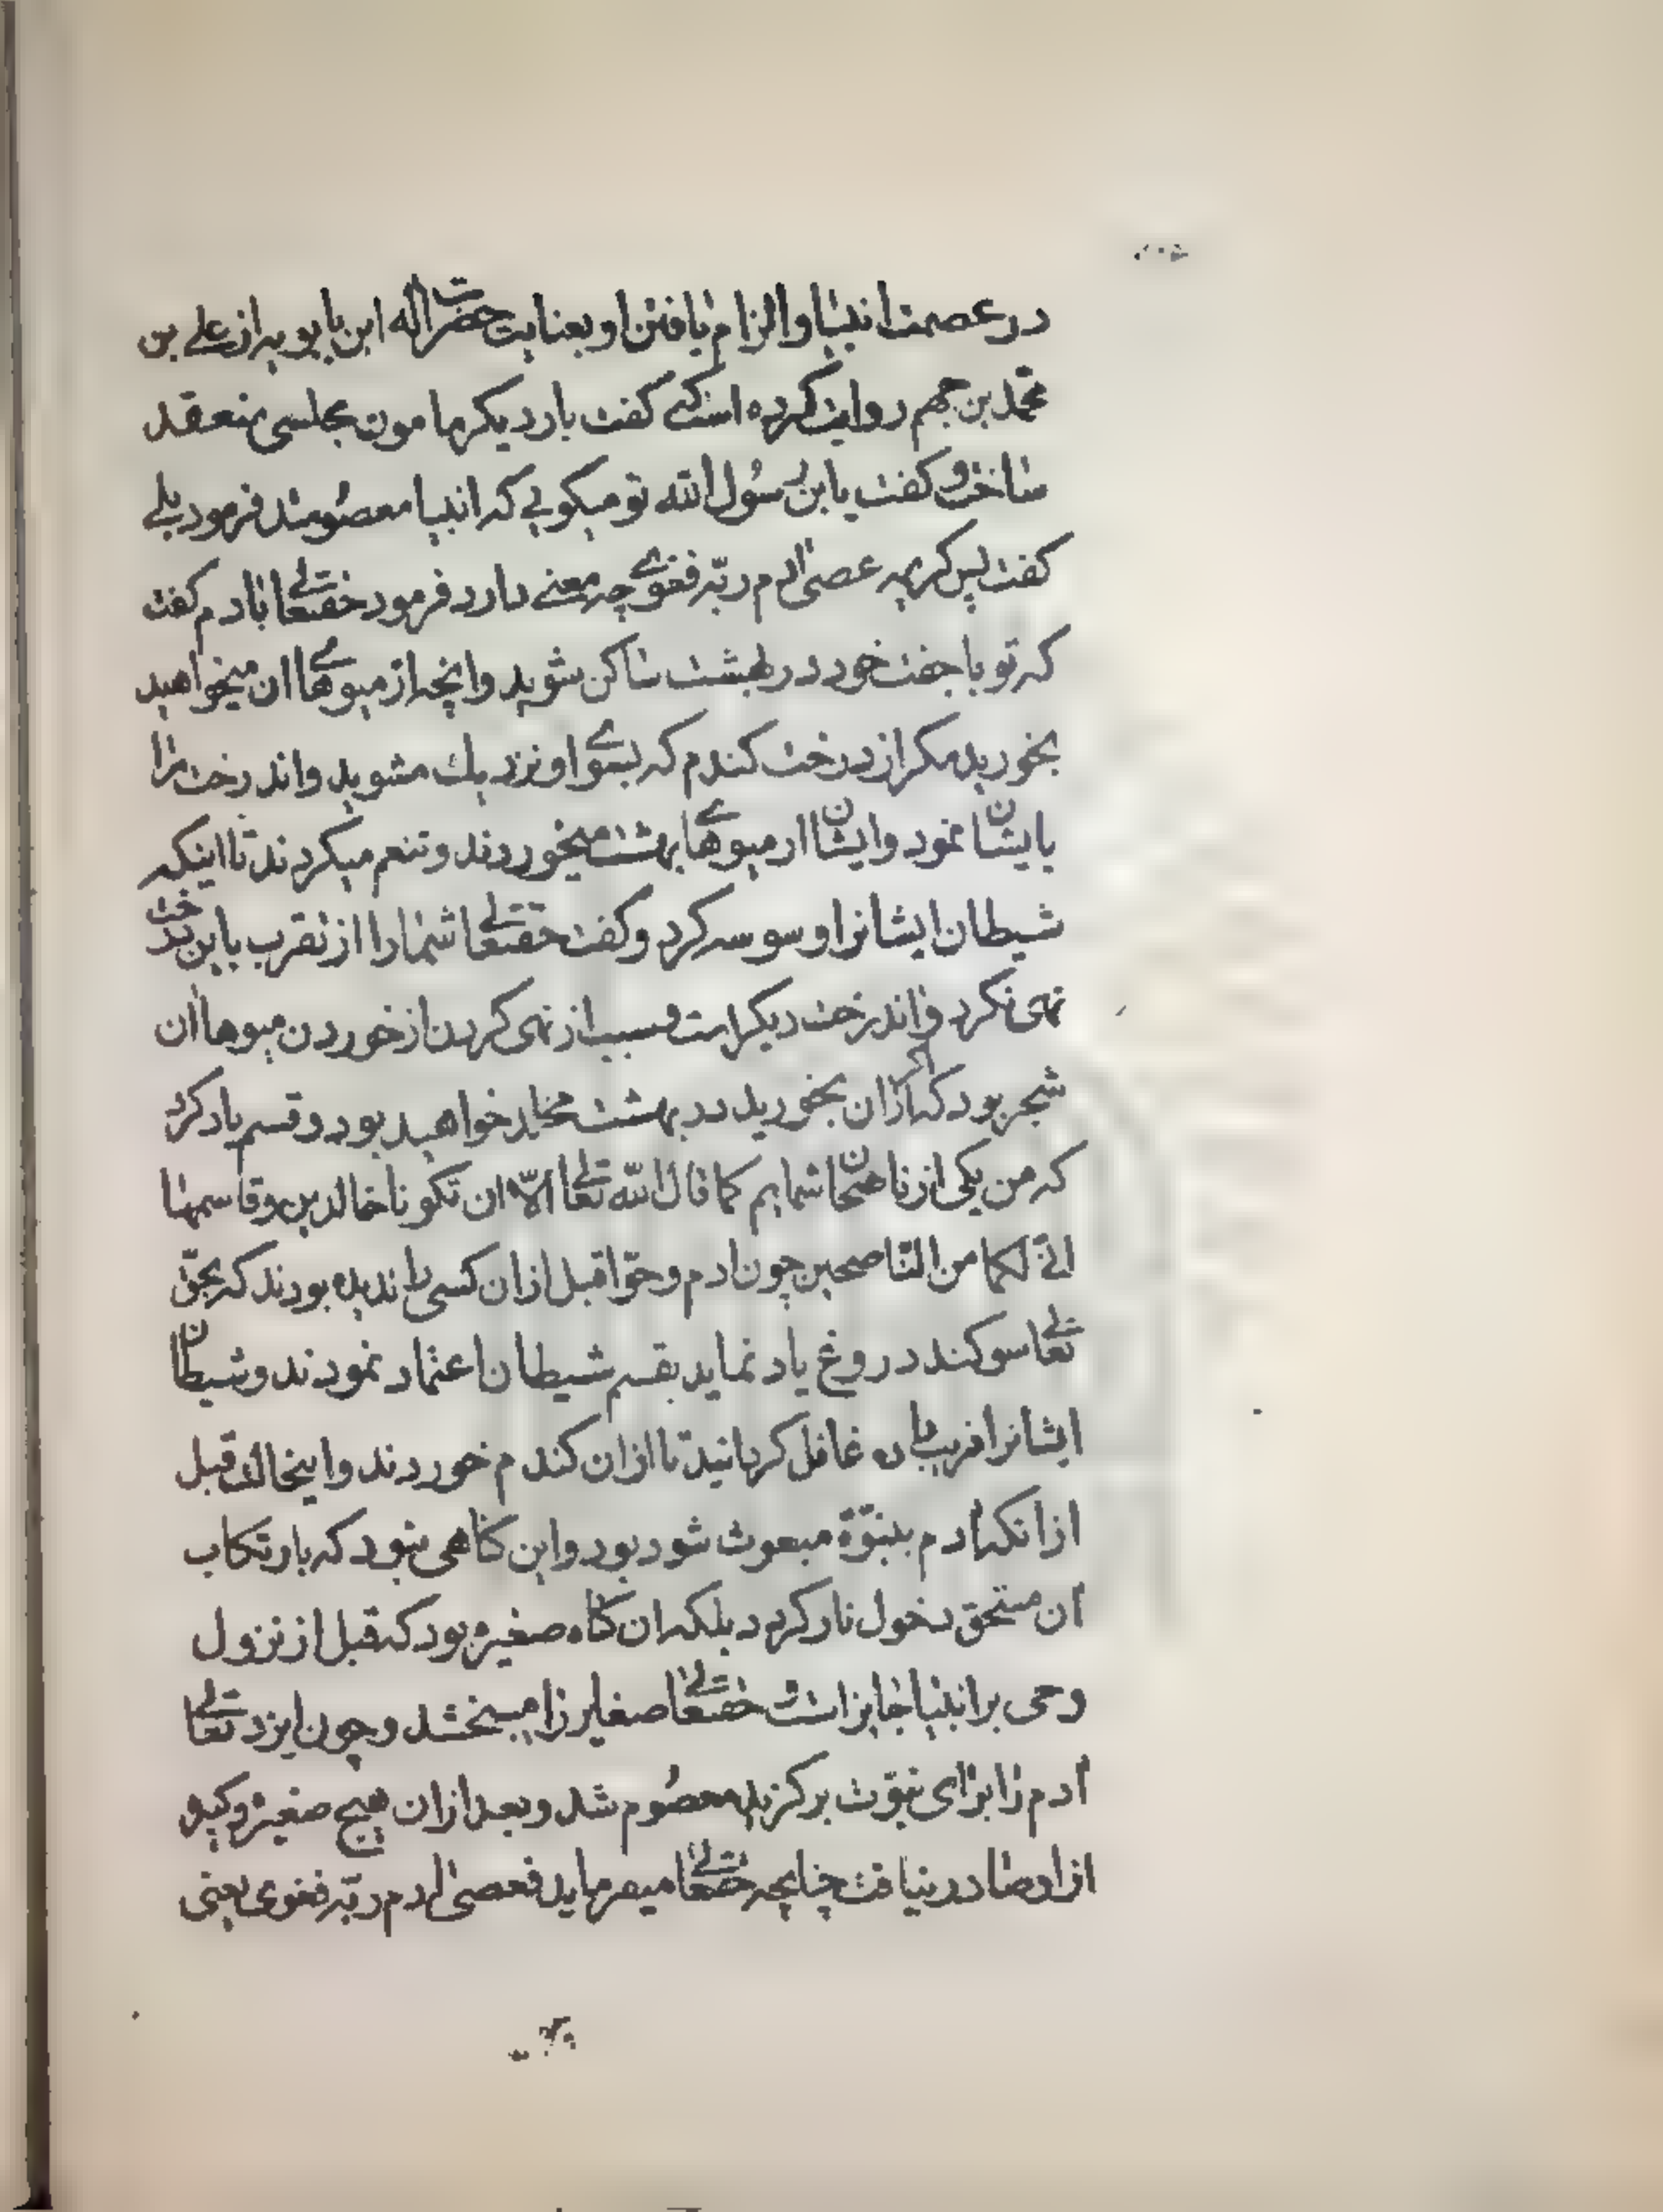 در عصمت انبیا و الزام یافتن او بعنایت حضرت اله ابن بابویه از علی بن
محمّد بن جهم روایت کرده است که گفت بار دیگر مامون مجلسی منعقد
ساخت و گفت یابن رسُول الله تو میگویی که انبیا معصُومند فرمود بلی
گفت پس کریمه عصیٰ ادم ربّه فغوی چه معنی دارد فرمود حقتعالی بادم گفت
که تو با جفت خود در بهشت ساکن شوید وانچه از میوهای ان میخواهید
بخورید مکر از درخت کندم که بسوی او نزدیك مشوید واندرخت را
بایشان نمود وایشان از میوهای بهشت میخوردند و تنعم میکردند تا اینکه
شیطان ایشانرا وسوسه کرد و کفت حقتعالی شما را از تقرب باین درخت
نهی نکرد واندرخت دیکر است و سبب از نهی کردن از خوردن میوها ان
شجر بود که اکر ازان بخورید در بهشت مخلد خواهید بود و قسم یاد کرد
که من یکی از ناصحان شمایم کما قال الله تعالی الّا ان تکونا خالدین وقاسمهما
انّی لکما من النّاصحین چون ادم و حوّا قبل ازان کسی را ندیده بودند که بحقّ
تعالی سوکند دروغ یاد نماید بقسم شیطان اعتماد نمودند و شیطان
ایشانرا فریب داده غافل کردانید تا ازان کندم خوردند و اینحالت قبل
ازانکه ادم بنبوّة مبعوث شود بود واین کناهی نبود که بارتکاب
ان مستحق دخول نار کردد بلکه ان کناه صغیره بود که قبل از نزول
وحی بر انبیا جایز است و حقتعالی صغایر را میبخشد و چون ایزد تعالی
آدم را برای نبوّت برکزید معصُوم شد و بعد ازان هیچ صغیره و کبیره
از او صادر نیافت چنانچه حقتعالی میفرماید فعصیٰ ادم ربّه فغوی یعنی